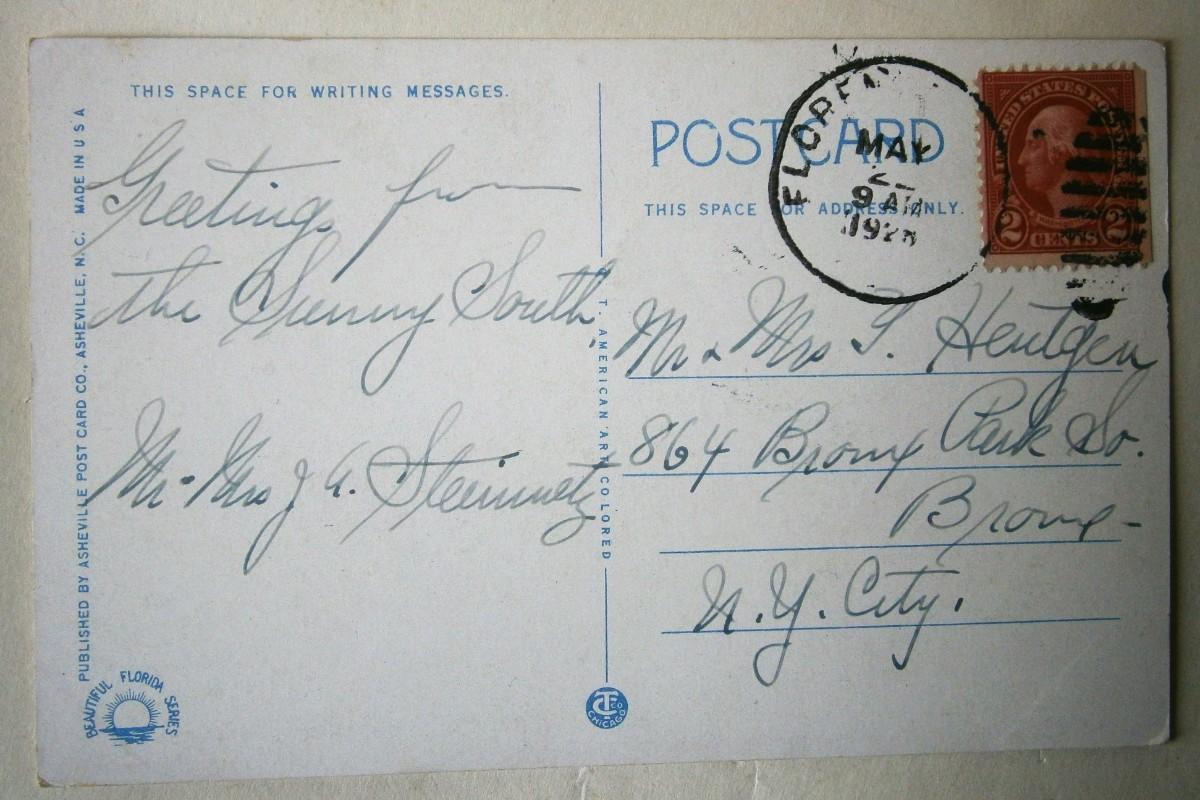 THIS SPACE FOR WRITING MESSAGES.
Greetings from
the Sunny South,
Mr - Mrs J A. Steinmetz
PUBLISHED BY ASHEVILLE POST CARD CO., ASHEVILLE, N. C. MADE IN U S A
BEAUTIFUL FLORIDA SERIES
T. AMERICAN ART COLORED
CT CO
CHICAGO
POST CARD
THIS SPACE FOR ADDRESS ONLY.
FLOREN
MAY
9 AM
UNITED STATES POSTAGE
2 CENTS 2
Mr & Mrs Hentgen
864 Bronx Park So.
Bronx -
N.Y. City.